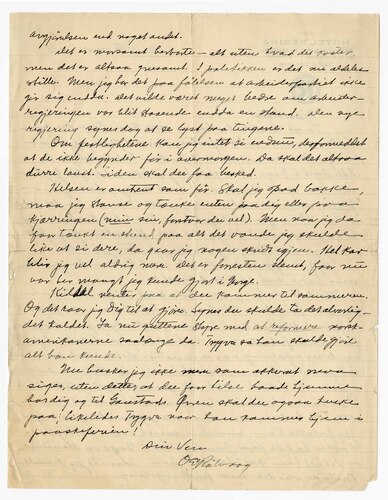 avgjörelsen end noget andet.
Det er morsomt derborte – alt uten hvad det koster,
men det er altsaa gusamt. I politikken er det nu aldeles
stille. Men jeg har det paa fölelsen at arbeiderpartiet ikke
gir sig endda. Det vilde været meget bedre om arbeider-
regjeringen var blit staaende endda en stund. Den nye
regjering synes dog at se lyst paa tingene.
Om festlighetene kan jeg intet si endnu, desformedelst
at de ikke begynder för i overmorgen. Da skal det altsaa
durre laust. siden skal du faa besked.
Helsen er omtrent som för. Skal jeg opad bakke,
maa jeg stanse og tænke enten paa dig eller paa
kjærringen (min sin, forstaar du vel). Men naar jeg da
har tænkt en stund paa alt det vonde jeg skulde
like at si dere, da gaar jeg nogen skridt igjen. Hel kar
blir jeg vel aldrig mere. Det er forresten slemt, for nu
var her mangt jeg kunde gjort i Norge.
Kildal venter paa at du kommer til sommeren.
Og det raar jeg dig til at gjöre. Synes du skulde ta det alvorlig-
det kaldet. Ta nu guttene Deres med at reformere norsk-
amerikanerne saalænge da. Trygve sa han skulde gjöre
alt han kunde.
Nu husker jeg ikke mere som akkurat maa
siges, uten dette, at du faar hilse baade hjemme
hos dig og til Gaustads. Ören skal du ogsaa huske
paa; likeledes Trygve naar han kommer hjem i
paaskeferien!
Din Ven
O E Rölvaag